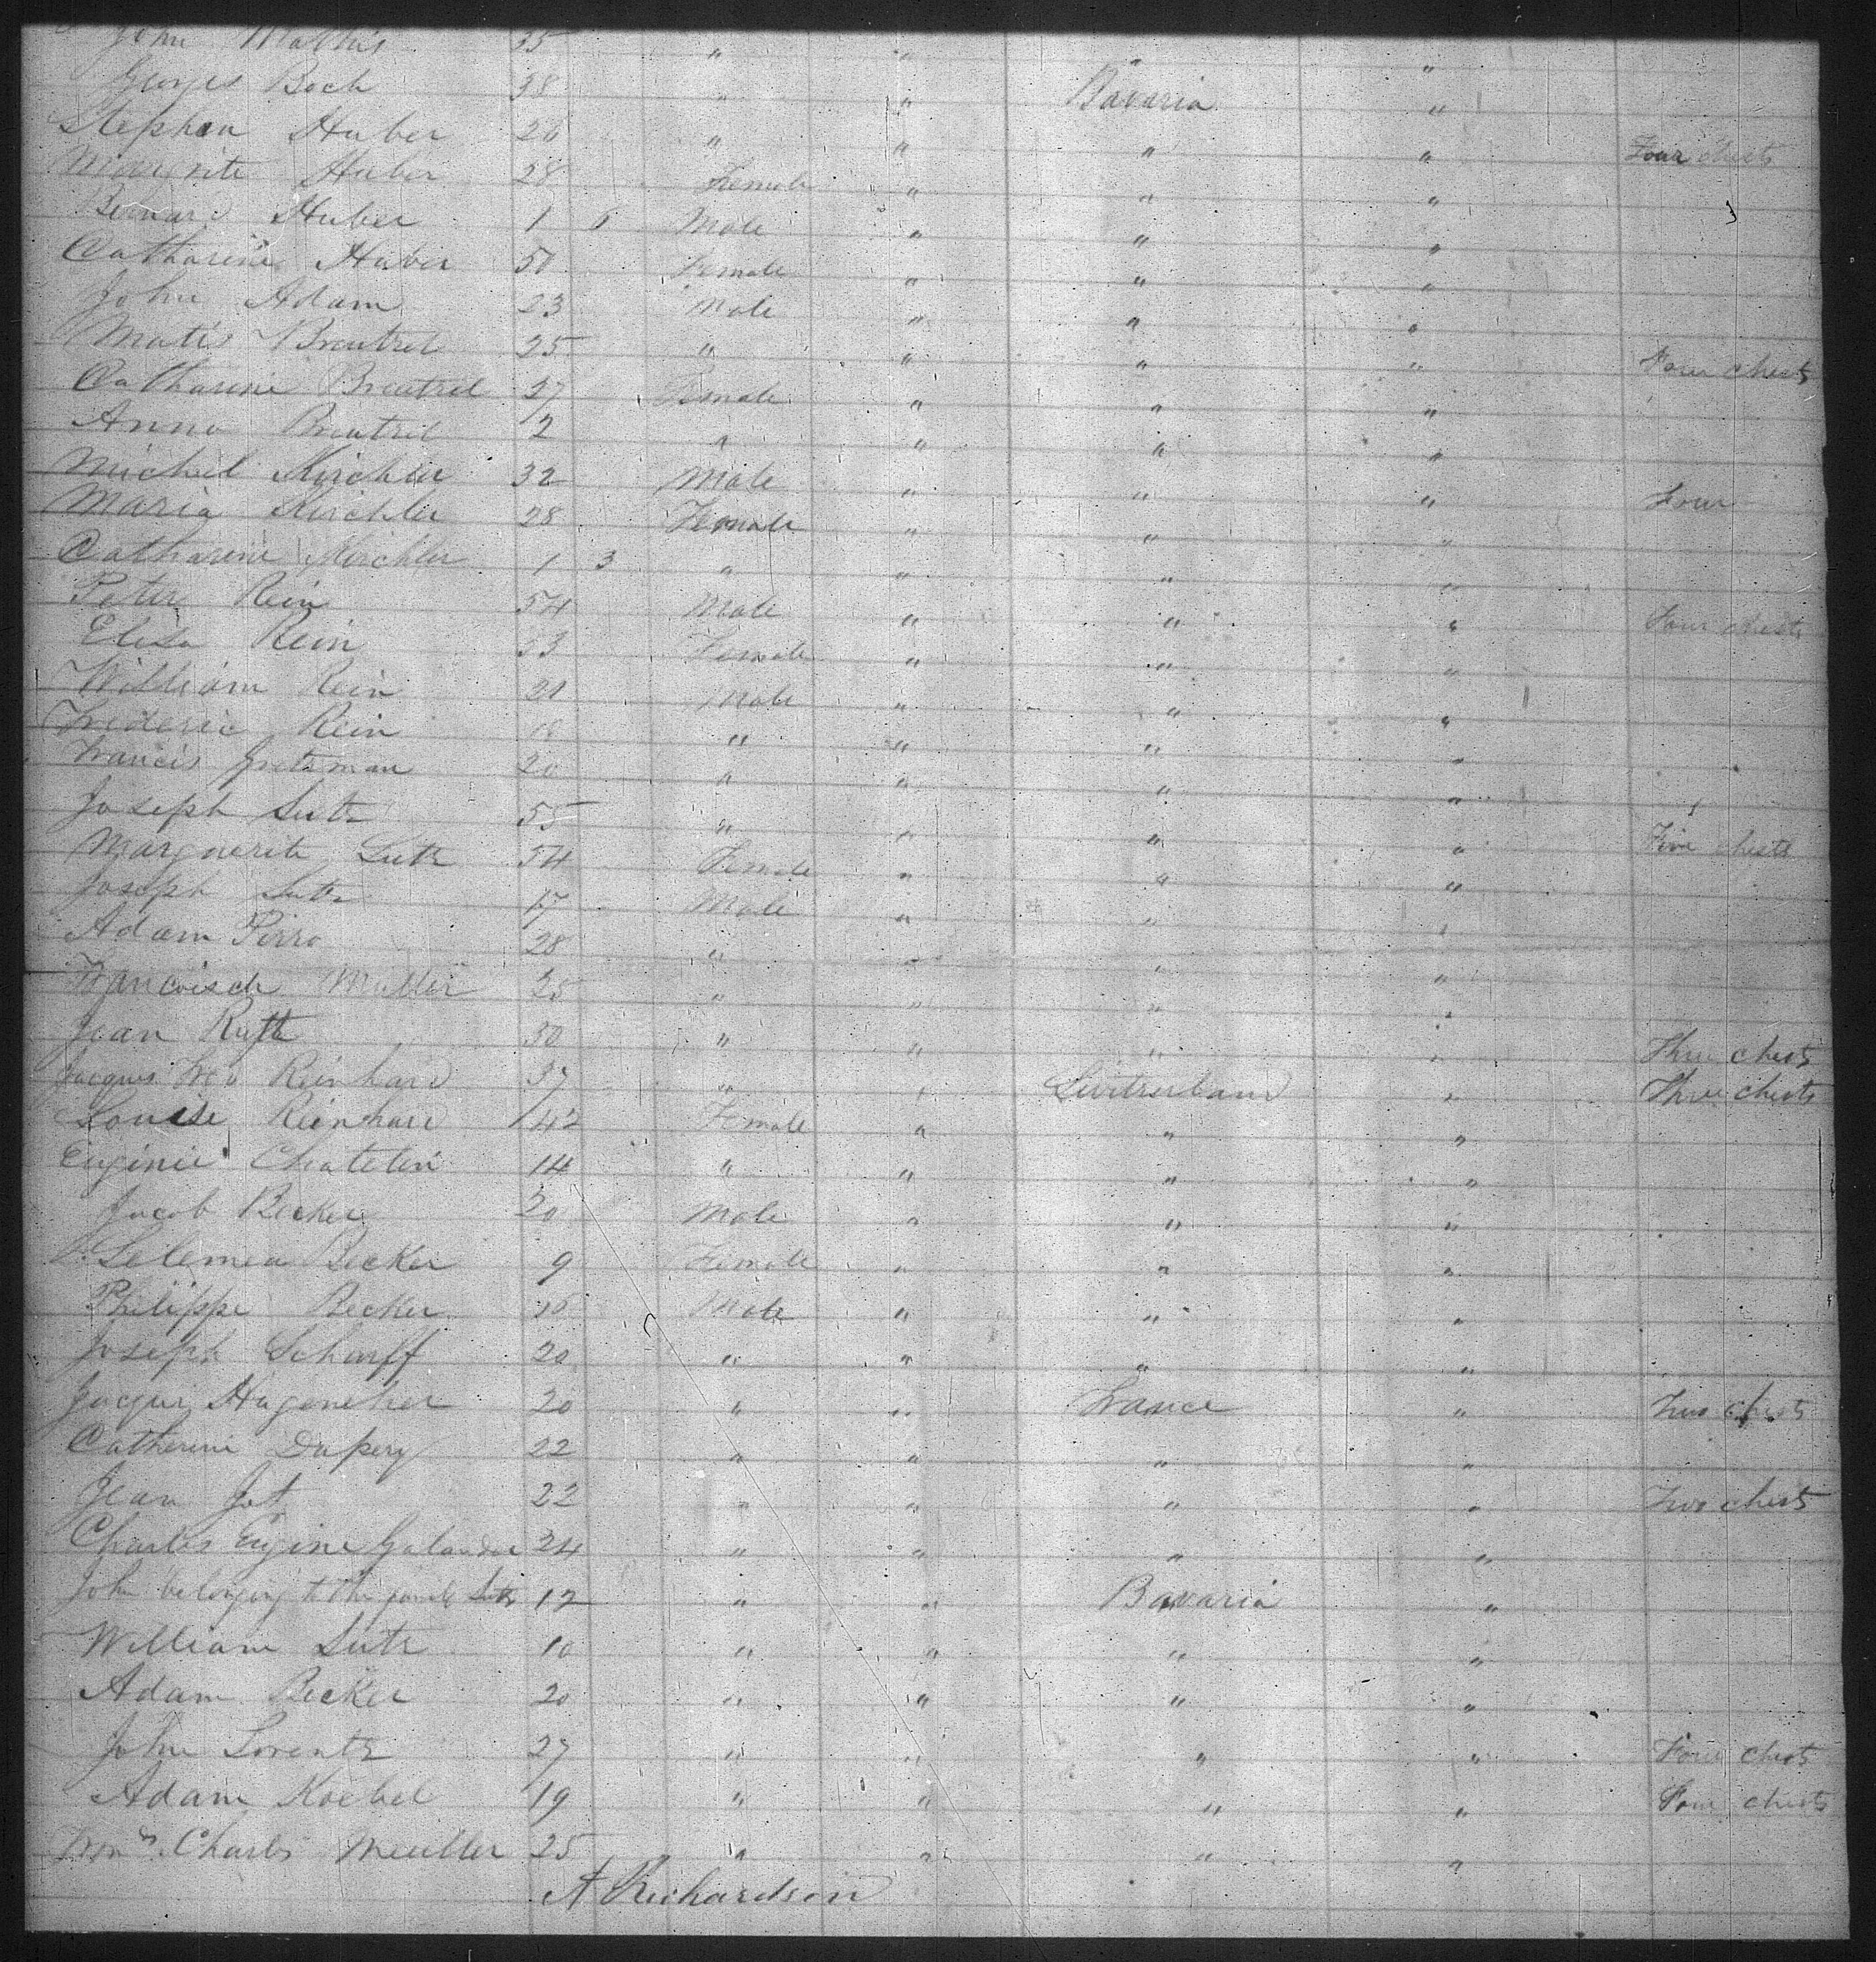 John Mathis 35 " " " "
Georges Bock 38 " " Bavaria "
Stephen Huber 28 " " " " Four chests
Margrite Huber 28 Female " " "
Bernard Huber 1 6 Male " " "
Catharine Huber 50 Female " " "
John Adam 23 Male " " "
Matis Breutrel 25 " " " " Four chests
Catharine Breutrel 27 Female " " "
Anna Breutrel 2 " " " "
Michel Kirchler 32 Male " " " Four
Maria Kirchler 28 Female " " "
Catharine Kirchler 1 3 " " " "
Peter Rein 54 Male " " " Four chests
Elisa Rein 53 Female " " "
William Rein 21 Male " " "
Frederic Rein 18 " " " "
Francis Gretzman 20 " " " "
Joseph Lutz 55 " " " " Five chests
Marguerite Lutz 54 Female " " "
Joseph Lutz 17 Male " " "
Adam Pirro 28 " " " "
Francoisch Muller 25 " " " "
Jean Ruft 30 " " " " Three chests
Jacques Reinhard 37 " " Switzerland " Three chests
Louise Reinhard 42 Female " " "
Euginie Chatelin 14 " " " "
Jacob Becker 20 Male " " "
Selemea Becker 9 Female " " "
Philippe Becker 16 Male " " "
Joseph Scharff 20 " " " "
Jacques Hugoneher 20 " " France " Two chests
Catherine Dupery 22 " " " "
Jean Jot 22 " " " " Two chests
Charles Eugine Galander 24 " " " "
John belonging to the family Lutz 12 " " Bavaria "
William Lutz 10 " " " "
Adam Becker 20 " " " "
John Lorentz 27 " " " " Four chests
Adam Koebel 19 " " " " Four chests
Wm Charles Meuller 25 " " " "
A Richardson